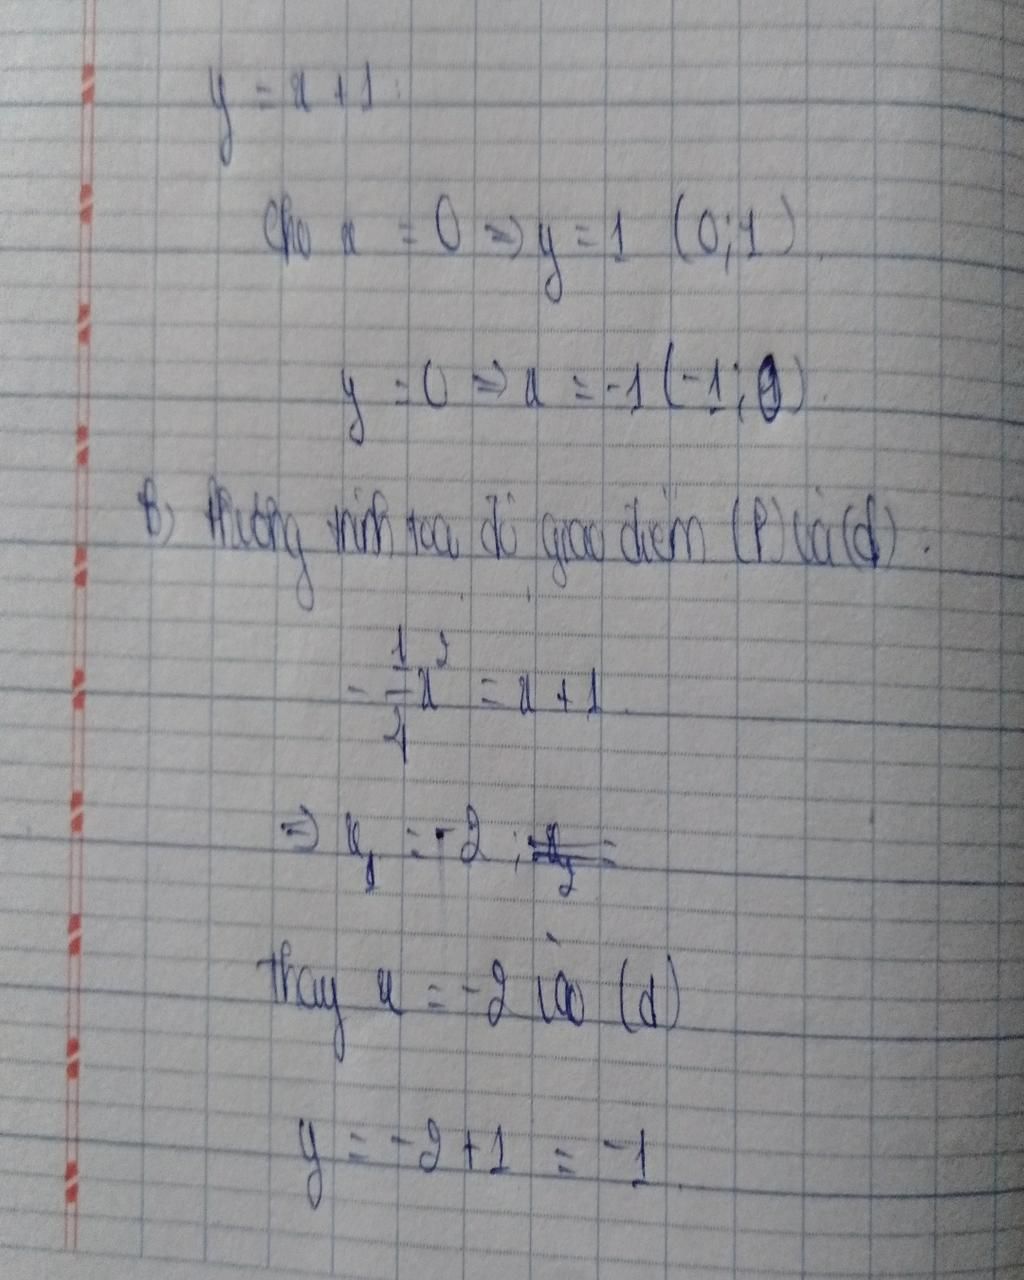 y = x + 1
Cho x = 0 => y = 1 (0;1)
y = 0 => x = -1 (-1;0)
b) Phương trình toạ độ giao điểm (P) và (d).
-1/4 x² = x + 1
=> x₁ = -2 ; x₂ =
thay x = -2 vào (d)
y = -2 + 1 = -1